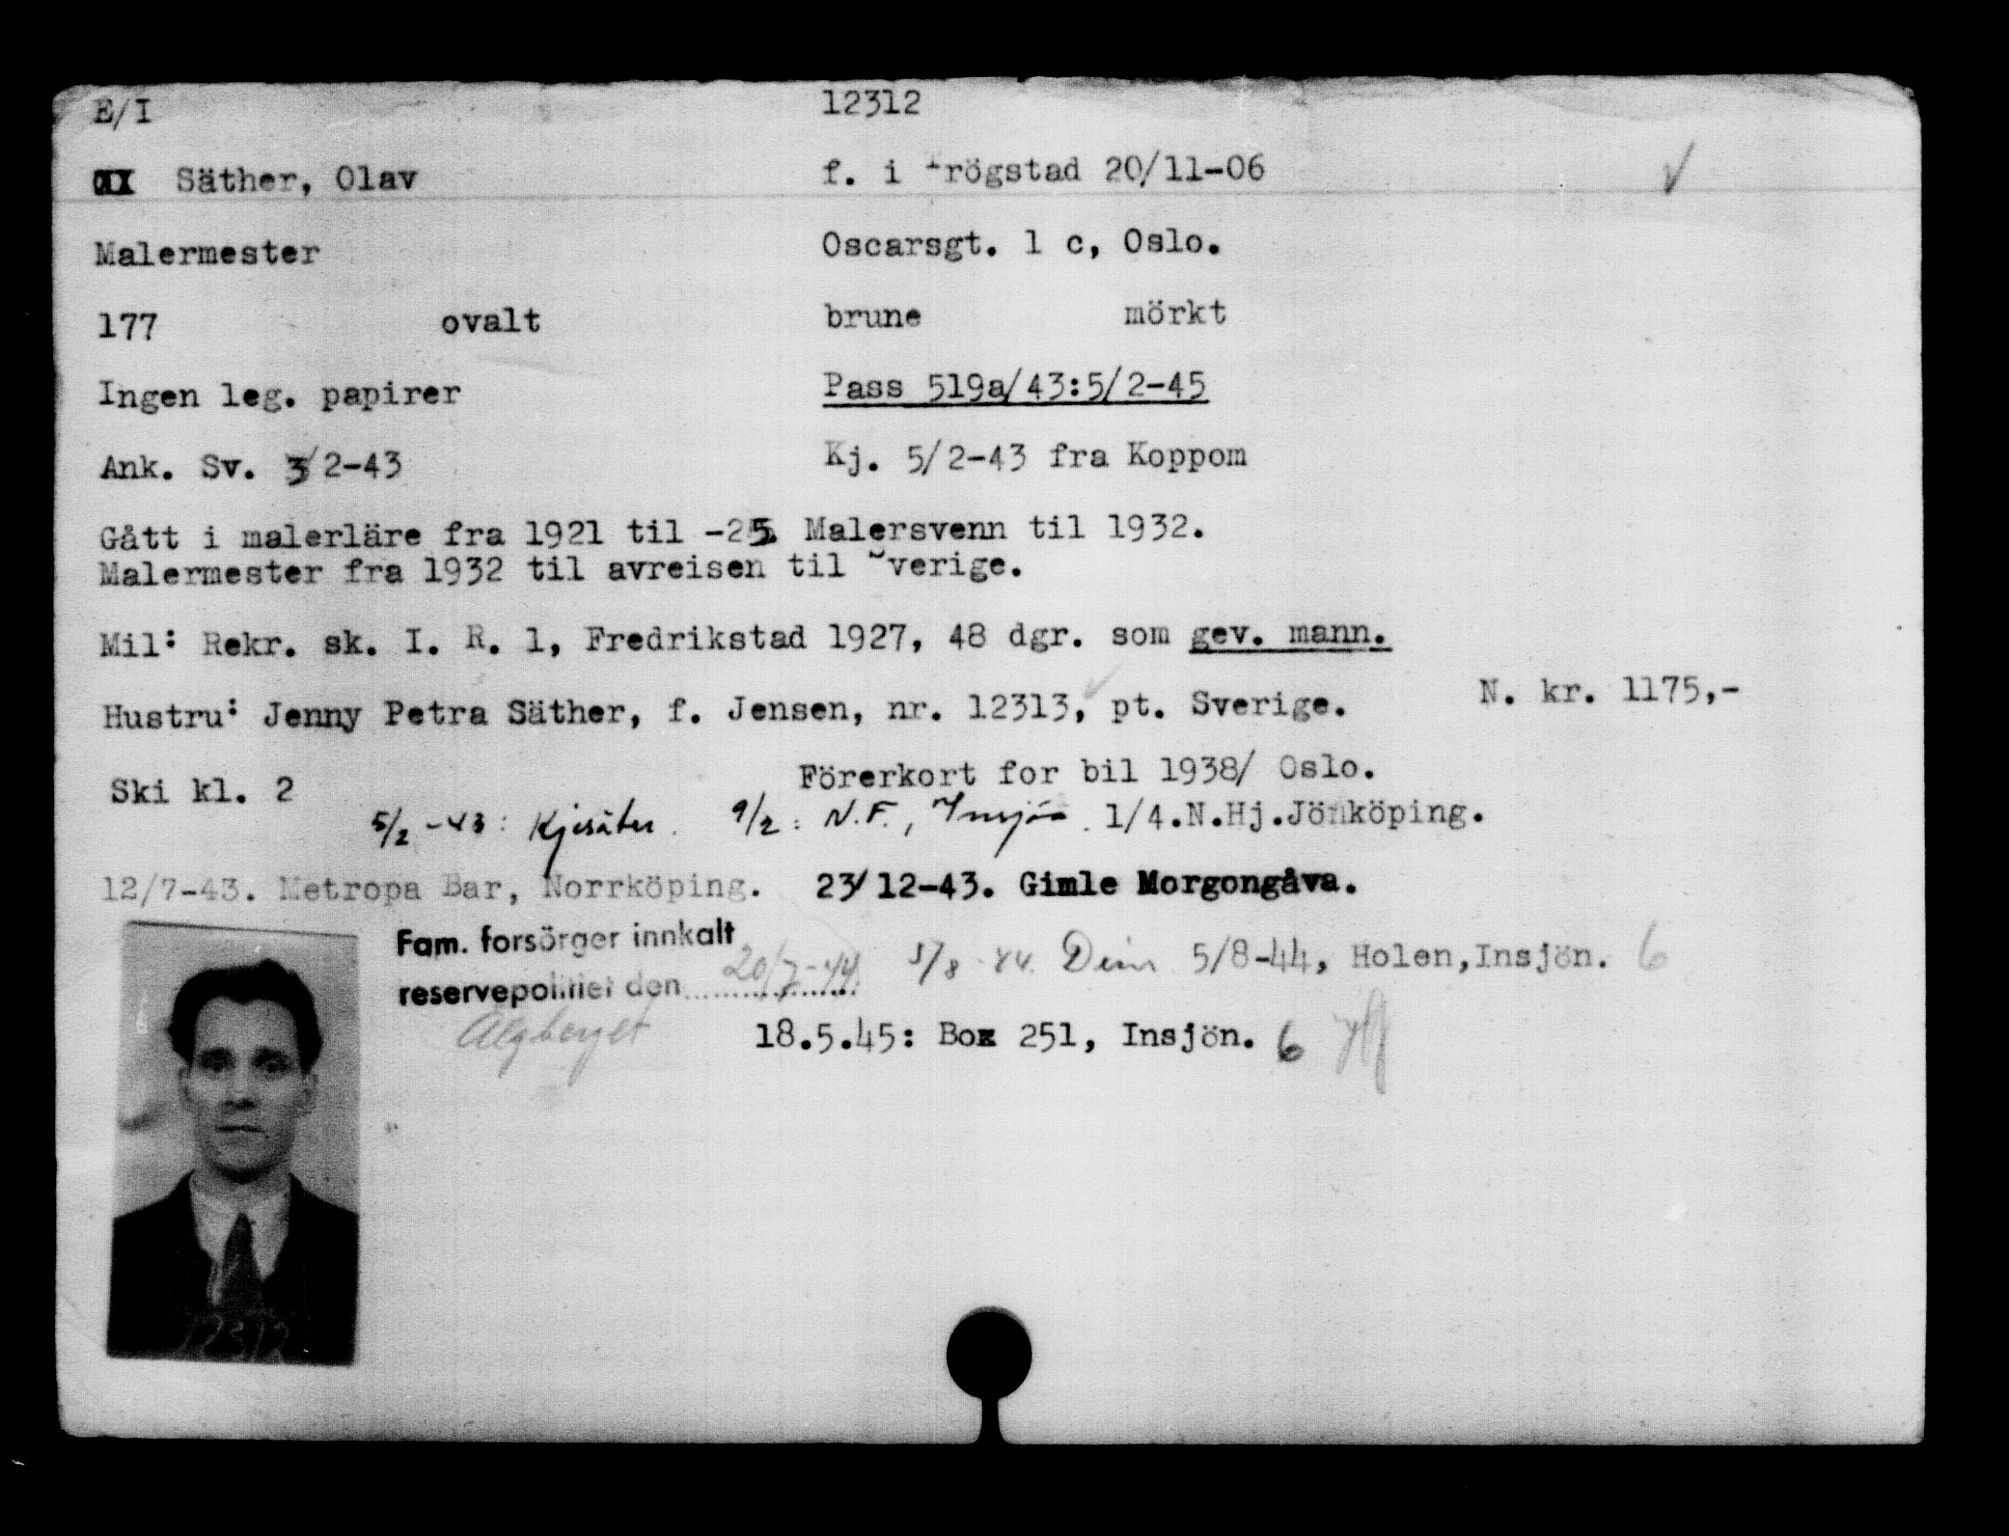 E/I 12312
Säther, Olav f. i Frögstad 20/11-06
Malermester Oscarsgt. 1 c, Oslo.
177 ovalt brune mörkt
Ingen leg. papirer Pass 519a/43:5/2-45
Ank. Sv. 3/2-43 Kj. 5/2-43 fra Koppom
Gått i malerläre fra 1921 til -25. Malersvenn til 1932.
Malermester fra 1932 til avreisen til Sverige.
Mil: Rekr. sk. I. R. 1, Fredrikstad 1927, 48 dgr. som gev. mann.
Hustru: Jenny Petra Säther, f. Jensen, nr. 12313, pt. Sverige. N. kr. 1175,-
Ski kl. 2 Förerkort for bil 1938/ Oslo.
5/2-43: Kjesäter. 9/2: N.F., Insjön. 1/4.N.Hj.Jönköping.
12/7-43. Metropa Bar, Norrköping. 23/12-43. Gimle Morgongåva.
Fam. forsörger innkalt
reservepolitiet den 20/7-44 5/8-44. Dim 5/8-44, Holen,Insjön. 6
Älgberget 18.5.45: Box 251, Insjön. 6
12312